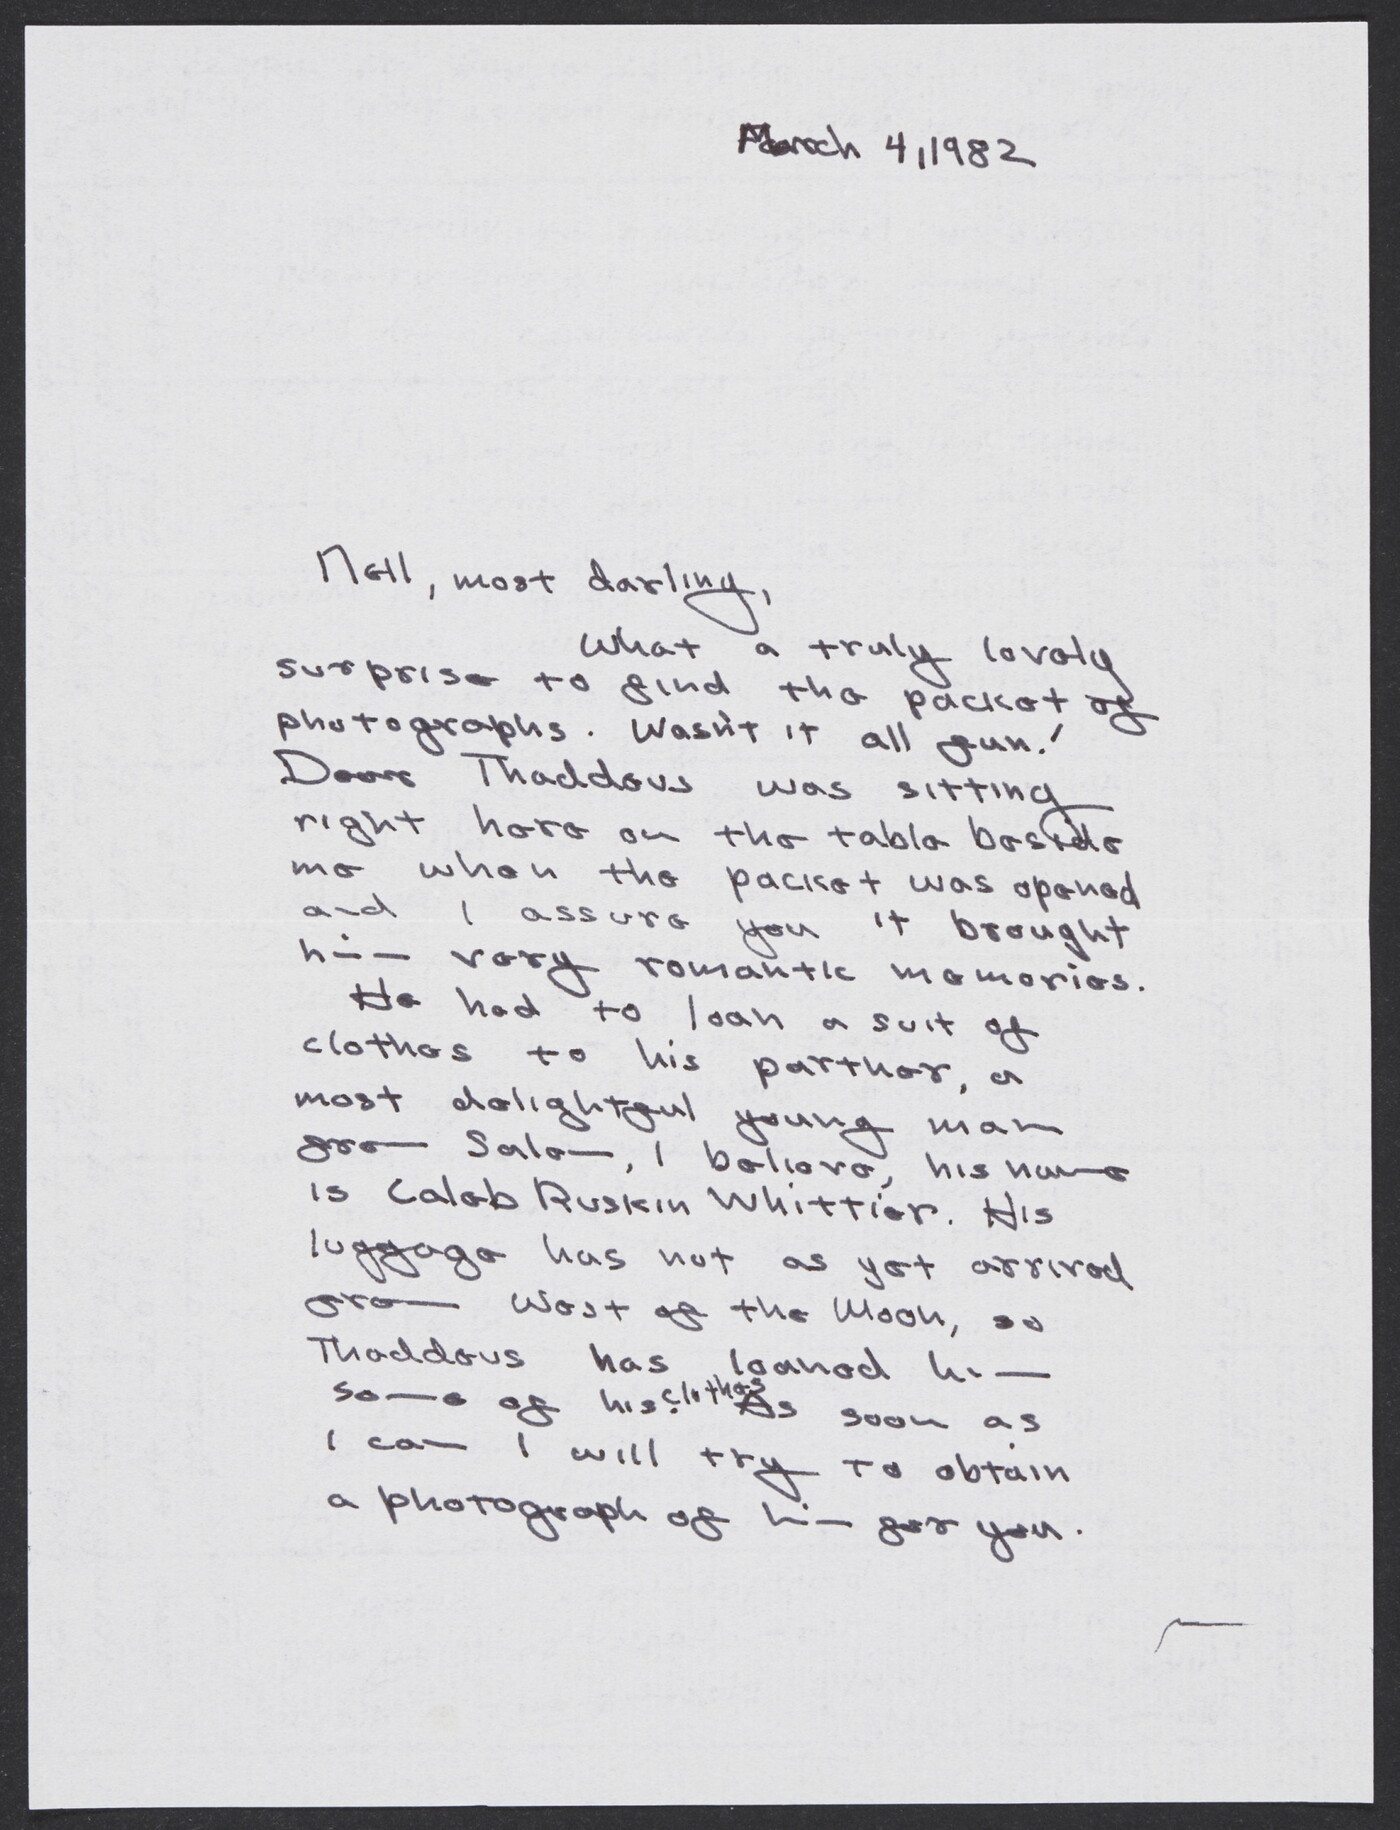 March 4, 1982
Nell, most darling,
What a truly lovely
surprise to find the packet of
photographs. Wasn't it all fun!
Dear Thaddeus was sitting
right here on the table beside
me when the packet was opened
and I assure you it brought
him very romantic memories.
He had to loan a suit of
clothes to his partner, a
most delightful young man
from Salem, I believe, his name
is Caleb Ruskin Whittier. His
luggage has not as yet arrived
from West of the Moon, so
Thaddeus has loaned him
some of his clothes. As soon as
I can I will try to obtain
a photograph of him for you.